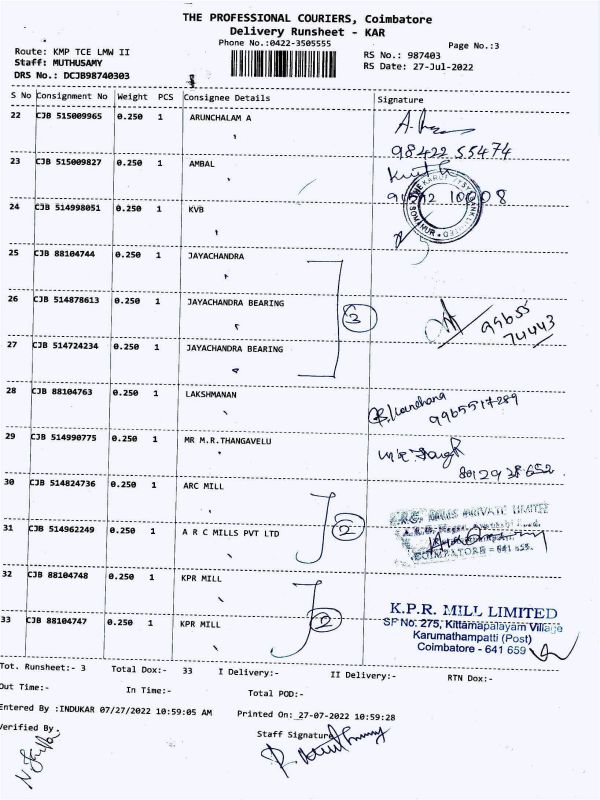 THE PROFESSIONAL COURIERS, Coimbatore
Delivery Runsheet - KAR
Phone No.:0422-3505555
Page No.:3
Route: KMP TCE LMW II
Staff: MUTHUSAMY
DRS No.: DCJB98740303
RS No.: 987403
RS Date: 27-Jul-2022
S No Consignment No Weight PCS Consignee Details Signature
22 CJB 515009965 0.250 1 ARUNCHALAM A
98422 55474
23 CJB 515009827 0.250 1 AMBAL
24 CJB 514998051 0.250 1 KVB
25 CJB 88104744 0.250 1 JAYACHANDRA
26 CJB 514878613 0.250 1 JAYACHANDRA BEARING
3
99655
74443
27 CJB 514724234 0.250 1 JAYACHANDRA BEARING
28 CJB 88104763 0.250 1 LAKSHMANAN
9965517289
29 CJB 514990775 0.250 1 MR M.R.THANGAVELU
8012938652
30 CJB 514824736 0.250 1 ARC MILL
31 CJB 514962249 0.250 1 A R C MILLS PVT LTD
2
COIMBATORE
32 CJB 88104748 0.250 1 KPR MILL
33 CJB 88104747 0.250 1 KPR MILL
2
K.P.R. MILL LIMITED
SF No. 275, Kittampalayam Village
Karumathampatti (Post)
Coimbatore - 641 659
Tot. Runsheet:- 3 Total Dox:- 33 I Delivery:- II Delivery:- RTN Dox:-
Out Time:- In Time:- Total POD:-
Entered By :INDUKAR 07/27/2022 10:59:05 AM Printed On: 27-07-2022 10:59:28
Verified By
Staff Signature